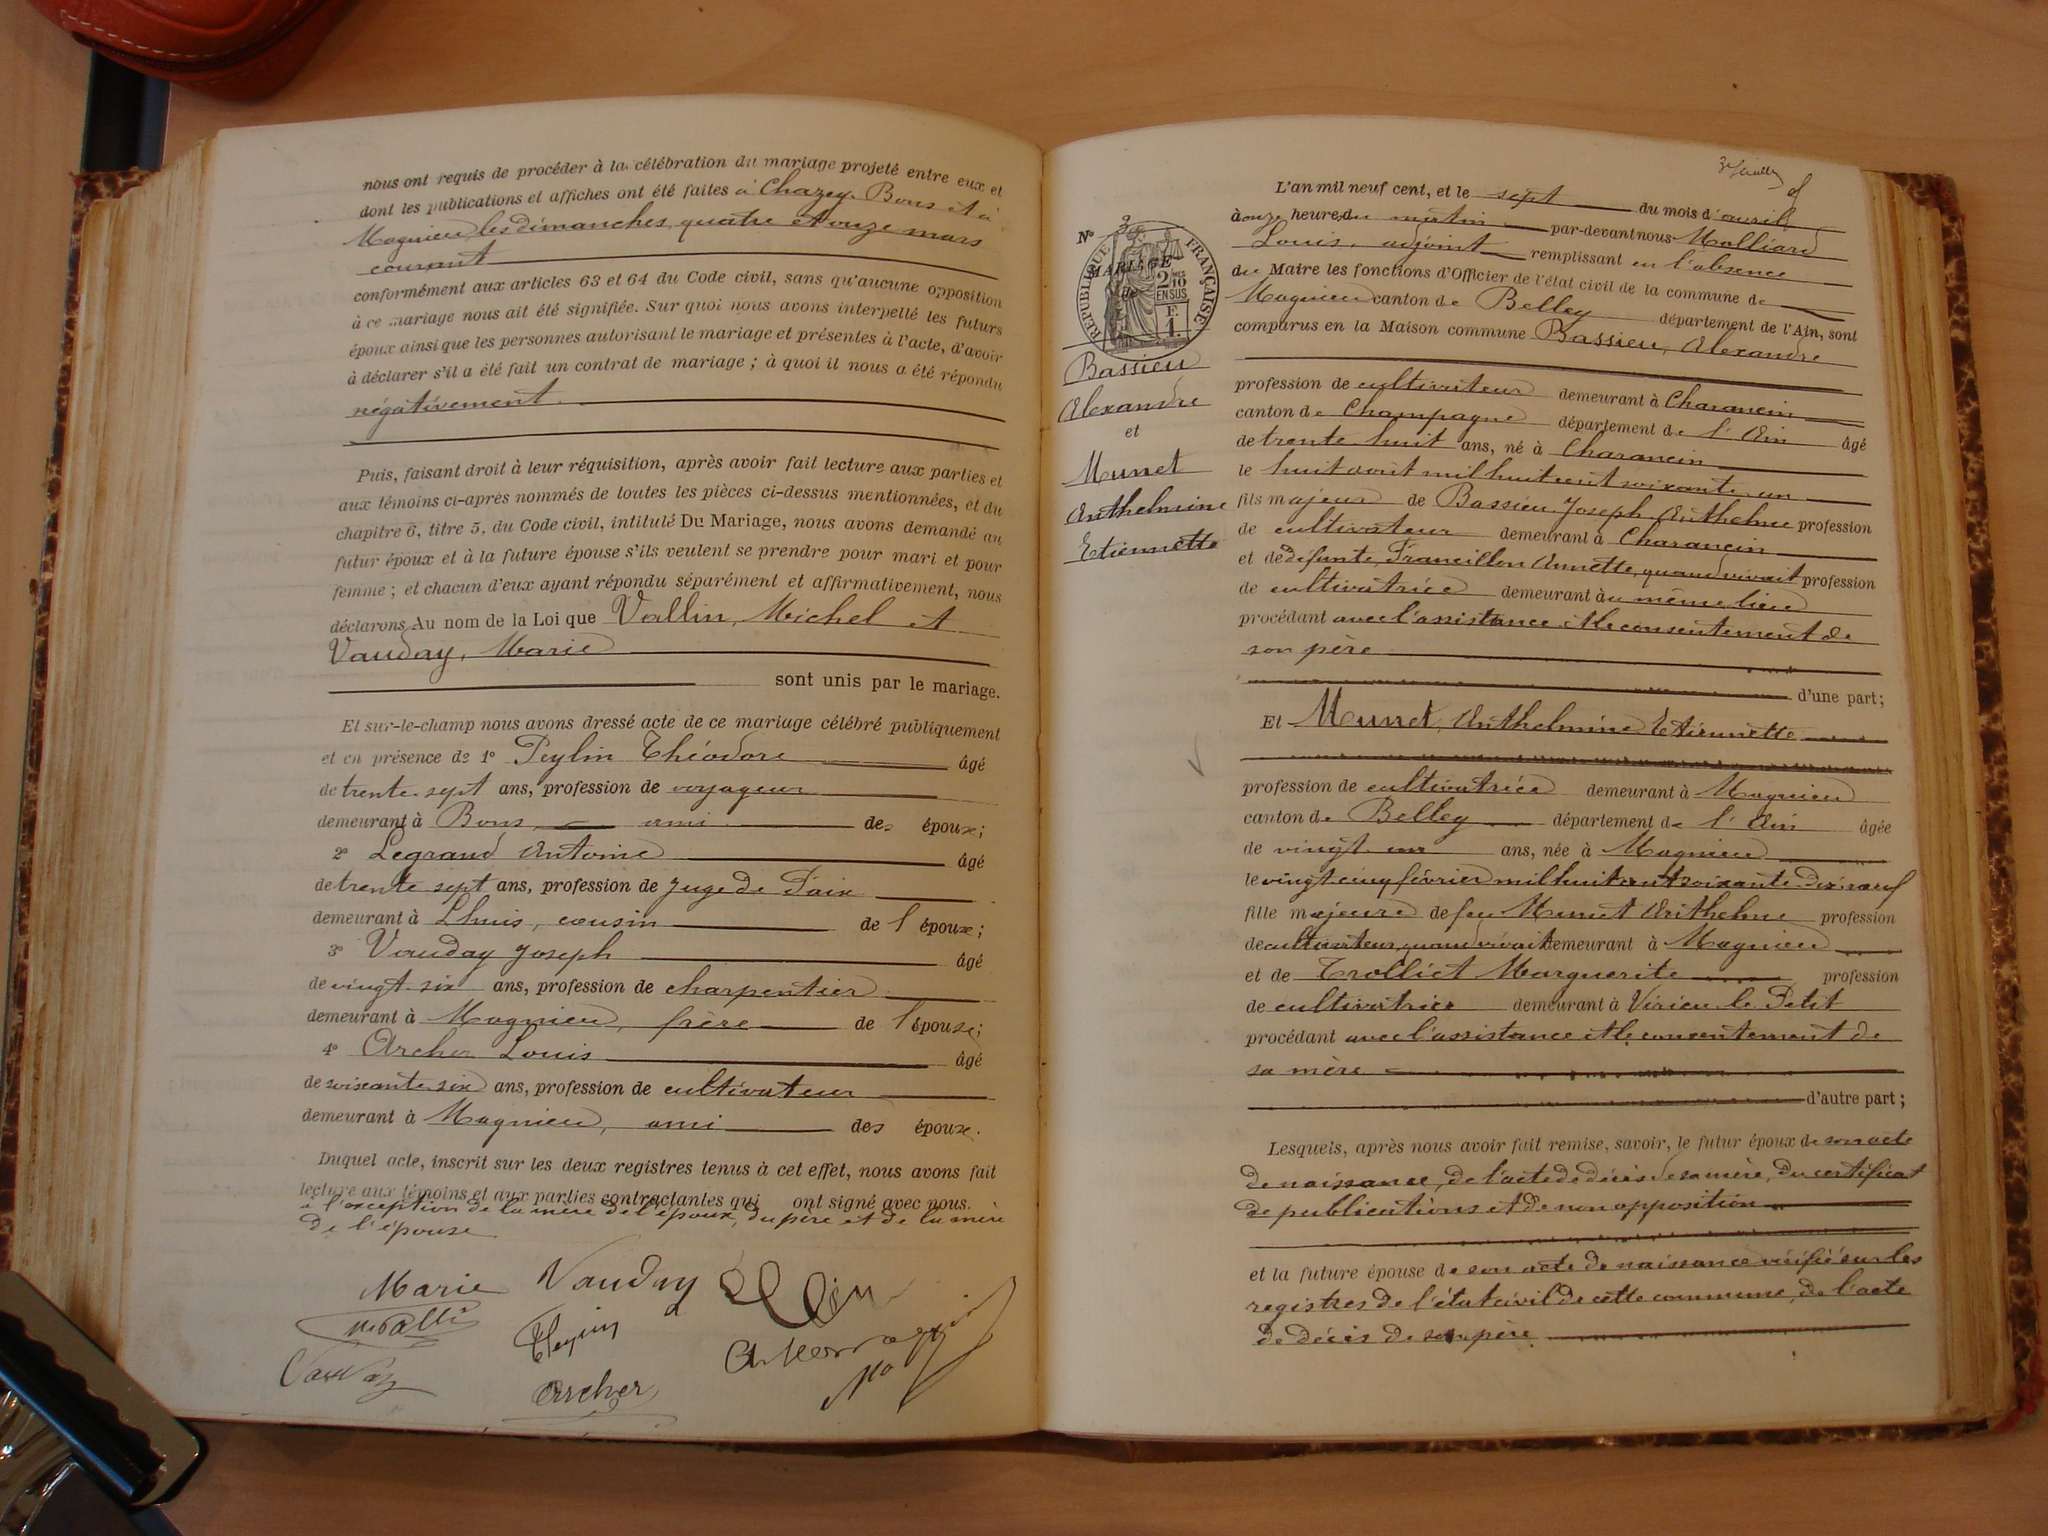 nous ont requis de procéder à la célébration du mariage projeté entre eux et
dont les publications et affiches ont été faites à Chazey-Bons et à
Magnieu, les dimanches, quatre et onze mars
courant
conformément aux articles 63 et 64 du Code civil, sans qu'aucune opposition
à ce mariage nous ait été signifiée. Sur quoi nous avons interpellé les futurs
époux ainsi que les personnes autorisant le mariage et présentes à l'acte, d'avoir
à déclarer s'il a été fait un contrat de mariage ; à quoi il nous a été répondu
négativement.
Puis, faisant droit à leur réquisition, après avoir fait lecture aux parties et
aux témoins ci-après nommés de toutes les pièces ci-dessus mentionnées, et du
chapitre 6, titre 5, du Code civil, intitulé Du Mariage, nous avons demandé au
futur époux et à la future épouse s'ils veulent se prendre pour mari et pour
femme ; et chacun d'eux ayant répondu séparément et affirmativement, nous
déclarons Au nom de la Loi que Vallin, Michel et
Vauday, Marie
sont unis par le mariage.
Et sur-le-champ nous avons dressé acte de ce mariage célébré publiquement
et en présence de 1° Peylin Théodore âgé
de trente-sept ans, profession de voyageur
demeurant à Bons, ami des époux;
2° Legrand Antoine âgé
de trente sept ans, profession de Juge de Paix
demeurant à Lhuis, cousin de l'époux;
3° Vauday Joseph âgé
de vingt-six ans, profession de charpentier
demeurant à Magnieu, frère de l'épouse;
4° Archer Louis âgé
de soixante-six ans, profession de cultivateur
demeurant à Magnieu, ami des époux.
Duquel acte, inscrit sur les deux registres tenus à cet effet, nous avons fait
lecture aux témoins et aux parties contractantes qui ont signé avec nous.
à l'exception de la mère de l'époux, du père et de la mère
de l'épouse
Marie Vauday
Archer
3e feuille
L'an mil neuf cent, et le sept du mois d'avril
à onze heures du matin par-devant nous Molliard
Louis, adjoint remplissant en l'absence
du Maire les fonctions d'Officier de l'état civil de la commune de
Magnieu canton de Belley département de l'Ain, sont
comparus en la Maison commune Bassieu, Alexandre
N° 3
MARIAGE
de
RÉPUBLIQUE FRANÇAISE
2/10 EN SUS
F. 1.
Bassieu
Alexandre
et
Munet
Anthelmine
Etiennette
profession de cultivateur demeurant à Charancin
canton de Champagne département de l'Ain âgé
de trente huit ans, né à Charancin
le huit août mil huit cent soixante-un
fils majeur de Bassieu Joseph Anthelme profession
de cultivateur demeurant à Charancin
et de défunte Francillon Annette, quand vivait profession
de cultivatrice demeurant au même lieu
procédant avec l'assistance et le consentement de
son père
d'une part;
Et Munet, Anthelmine Etiennette
profession de cultivatrice demeurant à Magnieu
canton de Belley département de l'Ain âgée
de vingt un ans, née à Magnieu
le vingt cinq février mil huit cent soixante-dix-neuf
fille majeure de feu Munet Anthelme profession
de cultivateur, quand vivait demeurant à Magnieu
et de Trolliet Marguerite profession
de cultivatrice demeurant à Virieu-le-Petit
procédant avec l'assistance et le consentement de
sa mère
d'autre part ;
Lesquels, après nous avoir fait remise, savoir, le futur époux de son acte
de naissance, de l'acte de décès de sa mère, du certificat
de publications et de non opposition
et la future épouse de son acte de naissance vérifié sur les
registres de l'état civil de cette commune, de l'acte
de décès de son père